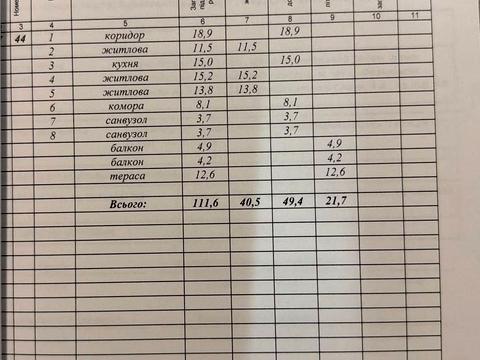 Номе
3 4 5 6 7 8 9 10 11
44 1 коридор 18,9 18,9
2 житлова 11,5 11,5
3 кухня 15,0 15,0
4 житлова 15,2 15,2
5 житлова 13,8 13,8
6 комора 8,1 8,1
7 санвузол 3,7 3,7
8 санвузол 3,7 3,7
балкон 4,9 4,9
балкон 4,2 4,2
тераса 12,6 12,6
Всього: 111,6 40,5 49,4 21,7